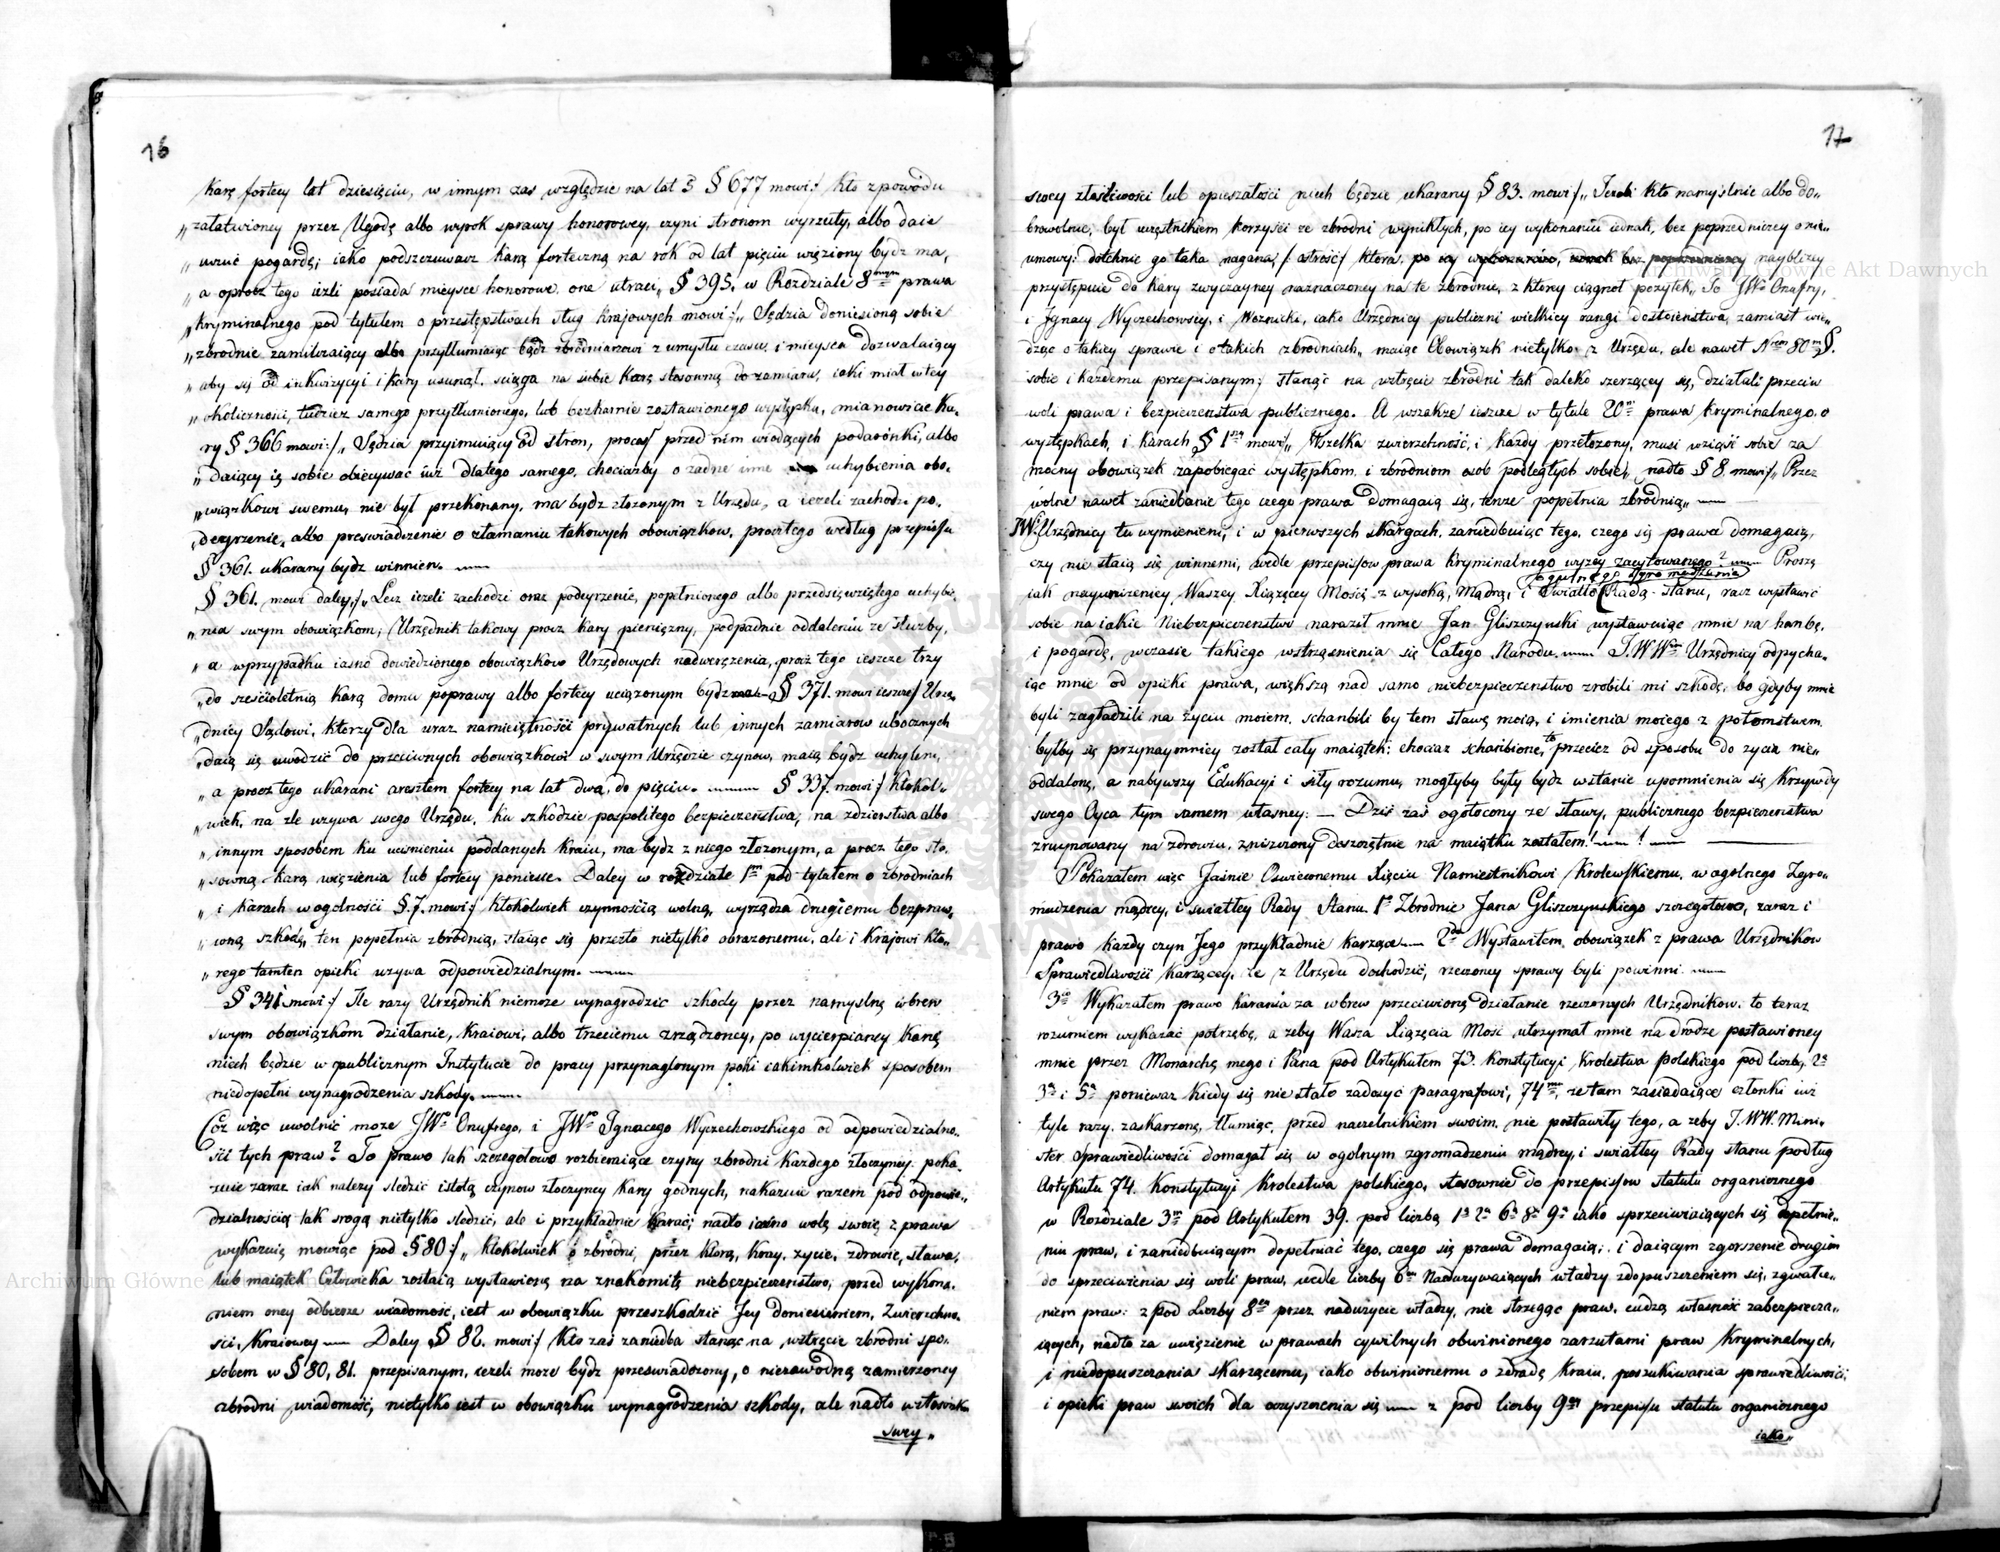 16
karę fortecy lat dziesięciu, w innym zas względzie na lat 5 § 677 mowi:/ kto z powodu
„ załatwioney przez Ugodę albo wyrok sprawy honorowey, czyni stronom wyrzuty, albo daie
„ uczuć pogardę; iako podszczuwacz karą forteczną na rok od lat pięciu więziony bydz ma,
„ a oprocz tego iezli posiada mieysce honorowe one utraci„ § 395. w Rozdziale 8mym prawa
„ kryminalnego pod tytułem o przestępstwach sług krajowych mowi:/„ Sędzia doniesioną sobie
„ zbrodnie zamilczaiący albo przytłumiaiąc bądź zbrodniarzowi z umysłu czasu i mieysca dozwalaiący
„ aby się od inkwizycyi i kary usunął, sciąga na siebie karę stosowną do zamiaru, iaki miał w tey
„ okoliczności, tudzież samego przytłumionego, lub bezkarnie zostawionego występku, mianowicie ku„
ry § 366 mowi:/„ Sędzia przyimuiący od stron, proces przed nim wiodących podarónki, albo
„ daiący ię sobie obiecywać iuż dlatego samego, chociażby o żadne inne uchybienia obo„
„ wiązkowi swemu, nie był przekonany, ma bydz złozonym z Urzędu, a iezeli zachodzi po„
„ deyrzenie, albo przeswiadczenie o złamaniu takowych obowiązkow, procz tego według przepisu
§ 361. ukarany bydz winnien.
§ 361. mowi daley:/„ Lecz iezeli zachodzi oraz podeyrzenie, popełnionego albo przedsięwziętego uchybie„
„ nia swym obowiązkom; Urzędnik takowy procz kary pienięzny, podpadnie oddaleniu ze służby,
„ a w przypadku iasno dowiedzionego obowiązkow Urzędowych nadweręzenia, procz tego ieszcze trzy
„ do szescioletnią karą domu poprawy albo fortecy uciązonym bydz § 371. mowi ieszcze/ Urzę„
„ dnicy Sądowi, ktorzy dla uraz namiętności prywatnych lub innych zamiarow ubocznych
„ daią się uwodzić do przeciwnych obowiązkowi w swym Urzędzie czynow, maią bydz uchyleni,
„ a procz tego ukarani aresztem fortecy na lat dwa, do pięciu. § 337. mowi:/ Ktokol„
„ wiek, na złe uzywa swego Urzędu, ku szkodzie pospolitego bezpieczeństwa, na zdzierstwa albo
„ innym sposobem ku ucisnieniu poddanych kraiu, ma bydz z niego złozonym, a procz tego sto„
„ sowną karą więzienia lub fortecy poniesie. Daley w rozdziale 1m pod tytułem o zbrodniach
„ i karach w ogolności § 7. mowi:/ Ktokolwiek czynnością wolną, wyrządza drugiemu bezpraw„
„ ioną szkodę, ten popełnia zbrodnią, staiąc się przezto nietylko obrazonemu, ale i krajowi kto„
„ rego tamten opieki uzywa odpowiedzialnym.
§ 341 mowi:/ Ile razy Urzędnik niemoże wynagrodzic szkody przez namyslną wbrew
swym obowiązkom działanie, kraiowi, albo trzeciemu zrządzoney, po wycierpianey karze
niech będzie w publicznym Instytucie do pracy przynaglonym poki iakimkolwiek sposobem
niedopełni wynagrodzenia szkody.
Coz więc uwolnić moze JWo Onufrego, i JWo Ignacego Wyczechowskiego od odpowiedzialno„
ści tych praw? To prawo tak szczegolowo rozbieraiące czyny zbrodni kazdego złoczyncy poka„
zuie zaraz iak nalezy sledzić istotę czynow złoczyncy kary godnych, nakazuie razem pod odpowie„
dzialnością tak srogą nietylko sledzić, ale i przykładnie karać; nadto iasno wolę swoię z prawa
wykazuię mowiąc pod § 80:/„ Ktokolwiek o zbrodni, przez którą, kray, zycie, zdrowie, sława,
lub maiątek Człowieka zostaią wystawioną na znakomite niebezpieczeństwo, przed wykona„
niem oney odbierze wiadomość, iest w obowiązku przeszkodzić Jey doniesieniem, Zwierzchno„
ści, Kraiowey Daley § 82. mowi:/ Kto zas zaniedba stanąc na wstręcie zbrodni spo„
sobem w § 80, 81. przepisanym, iezeli moze bydz przeswiadczony, o niezawodną zamierzoney
zbrodni wiadomość, nietylko iest w obowiązku wynagrodzenia szkody, ale nadto
swey„
17
swey złośliwości lub opieszałości niech będzie ukarany § 83. mowi:/„ Jezeli kto namyslnie albo do„
browolnie, był uczęstnikiem korzysci ze zbrodni wynikłych, po iey wykonaniu iednak, bez poprzedniczey o nie„
umowy: dotchnie go taka nagana,/: ostrość:/ która, po iey nayblizey
przystępuie do kary zwyczayney naznaczoney na te zbrodnie, z ktorey ciągnoł pozytek„ To JWo Onufry,
i Ignacy Wyczechowscy, i Woznicki, iako Urzędnicy publiczni wielkiey rangi dostoienstwa, zamiast wie„
dząc o takiey sprawie i o takich zbrodniach„ maiąc Obowiązek nietylko z Urzędu, ale nawet 80 §.
sobie i kazdemu przepisanym; stanąć na wstręcie zbrodni tak daleko szerzącey się, działali przeciw
woli prawa i bezpieczenstwa publicznego. A wszakze ieszcze w tytule 20m prawa kryminalnego o
występkach, i karach § 1szy mowi:/„ Wszelka zwierzchność, i kazdy przełozony, musi wziąść sobie za
mocny obowiązek zapobiegać występkom i zbrodniom osob podległych sobie„ nadto § 8. mowi:/„ Przez
wolne nawet zaniedbanie tego czego prawa domagaią się, tenze popełnia zbrodnią„
JWo Urzędnicy tu wymienieni, i w pierwszych skargach, zaniedbuiąc tego, czego się prawa domagaią,
czy nie staią się winnemi, wedle przepisow prawa kryminalnego wyzey zacytowanego? Proszę
ogulnego zgromadzenia
iak nayunizeniey Waszey Xiązęcey Mości z wysoką, mądrą, i swiatło Radą Stanu, racz wystawić
sobie na iakie Niebezpieczenstwo naraził mnie Jan Gliszczynski wystawuiąc mnie na hanbę,
i pogardę, wczasie takiego wstrząsnienia się Całego Narodu. J.W.Wni Urzędnicy odpycha„
iąc mnie od opieki prawa, większą nad samo niebezpieczenstwo zrobili mi szkodę, bo gdyby mnie
byli zagładzili na zyciu moiem, schanbili by tem sławę moią, i imienia moiego z potomstwem
byłby się przynaymniey został cały maiątek: chociaz schańbione, to przeciez od sposobu do zycia nie„
oddalone, a nabywszy Edukacyi i siły rozumu, mogłyby były bydz w stanie upomnienia się Krzywdy
swego Oyca tym samem własney: — Dziś zaś ogołocony ze sławy, publicznego bezpieczenstwa
zruynowany na zdrowiu, zniszczony doszczętnie na maiątku zostałem! !
Pokazałem więc Jaśnie Oswieconemu Xięciu Namiestnikowi Krolewskiemu, w ogolnego Zgro„
madzenia mądrey, i swiatłey Rady Stanu. 1o Zbrodnie Jana Gliszczynskiego szczegołowo, zaraz i
prawo kazdy czyn Jego przykładnie karzące 2do Wystawiłem, obowiązek z prawa Urzędnikow
Sprawiedliwości karzącey, ze z Urzędu dochodzić, rzeczoney sprawy byli powinni
3io Wykazałem prawo karania za wbrew przeciwioną działanie rzeczonych Urzędnikow: to teraz
rozumiem wykazać potrzebę, a zeby Wasza Xiązęcia Mość utrzymał mnie na drodze postawioney
mnie przez Monarchę mego i Pana pod Artykułem 73. Konstytucyi Krolestwa polskiego pod liczbą 2a
3a i 5a poniewaz kiedy się nie stało zadosyć Paragrafowi, 74mu, ze tam zasiadaiące członki iuz
tyle razy zaskarzone, tłumiąc, przed naczelnikiem swoim, nie postawiły tego, a zeby J.W.W. Mini„
ster Sprawiedliwości domagał się w ogolnym zgromadzeniu mądrey, i swiatłey Rady Stanu podług
Artykułu 74. Konstytucyi Krolestwa polskiego, stosownie do przepisow statutu organicznego
w Rozdziale 3m pod Artykułem 39. pod liczbą 1a 2a 6a 8a 9a iako sprzeciwiaiących się dopełnie„
niu praw, i zaniedbuiącym dopełniać tego, czego się prawa domagaią; i daiącym zgorszenie drugim
do sprzeciwienia się woli praw, wedle liczby 6ta Naduzywaiących władzy zdopuszczeniem się, zgwałce„
niem praw: z pod Liczby 8ma przez naduzycie władzy, nie strzegąc praw, cudzą własność zabezpiecza„
iących, nadto za uwięzienie w prawach cywilnych obwinionego zarzutami praw Kryminalnych,
i niedopuszczania skarzącemu, iako obwinionemu o zdradę kraiu, poszukiwania sprawiedliwości;
i opieki praw swoich dla oczyszczenia się z pod liczby 9ma przepisu statutu organicznego
iako„
Archiwum Główne Akt Dawnych
Archiwum Główne